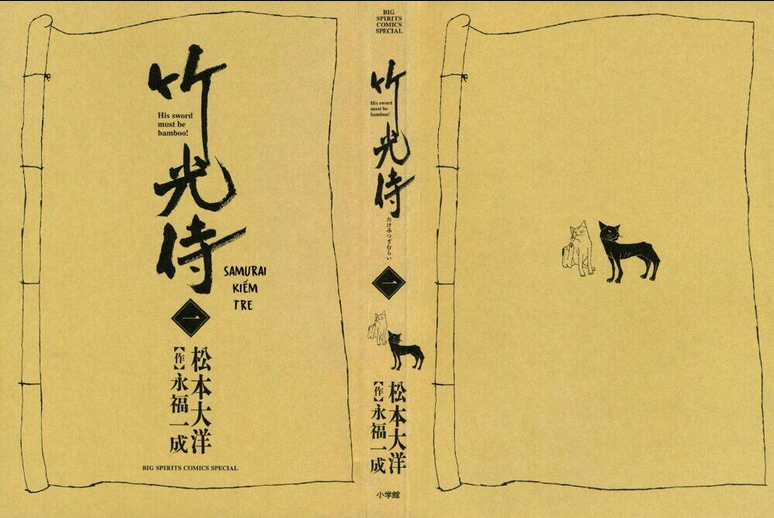 竹光侍
His sword
must be
bamboo!
SAMURAI
KIẾM
TRE
一
松本大洋
【作】永福一成
BIG SPIRITS COMICS SPECIAL
BIG
SPIRITS
COMICS
SPECIAL
竹光侍
His sword
must be
bamboo!
たけみつざむらい
一
松本大洋
【作】永福一成
小学館